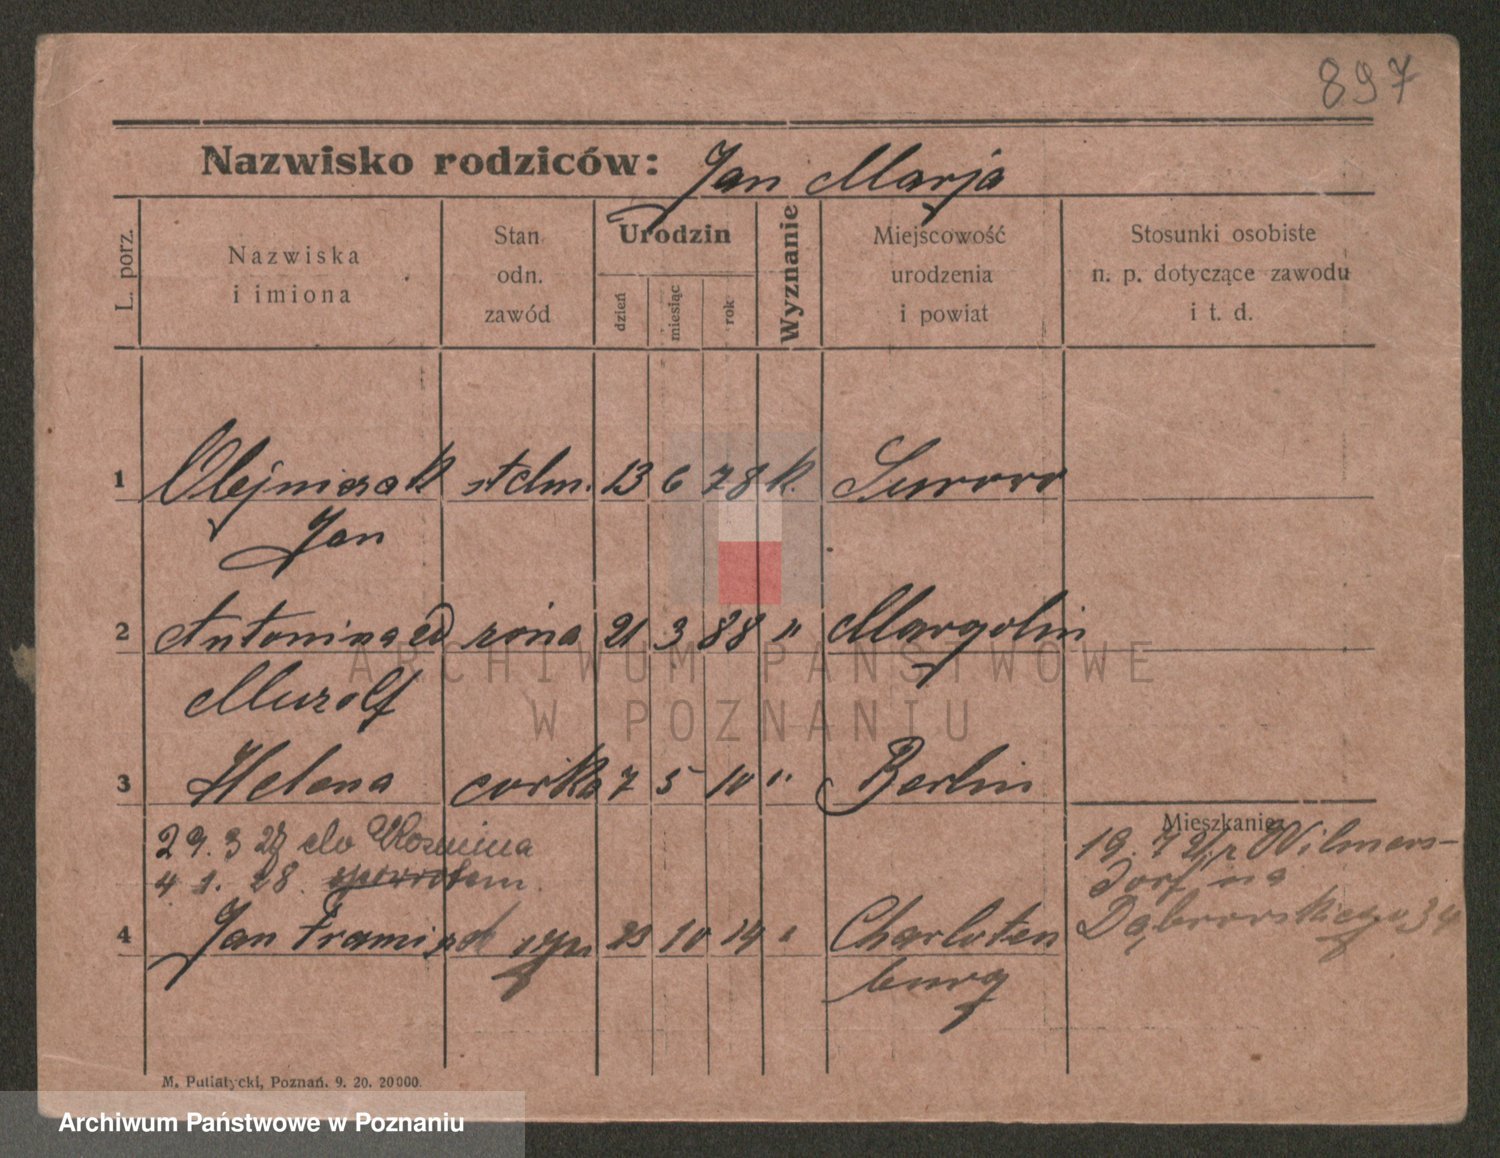 897
Nazwisko rodziców: Jan Marja
L. porz.
Nazwiska
i imiona
Stan
odn.
zawód
Urodzin
dzień
miesiąc
rok
Wyznanie
Miejscowość
urodzenia
i powiat
Stosunki osobiste
n. p. dotyczące zawodu
i t. d.
1 Olejniczak stelm. 13 6 78 k.
Jan
2 Antonina zd żona 21 3 88 " Margolin
Muzolf
3 Helena córka 7 5 10 " Berlin
29. 3 27 do Koźmina
4 1. 28. spowrotem.
Mieszkanie:
19. 7 21 z Wilmers-
dorf na
Dąbrowskiego 34
4 Jan syn 23 10 14 " Charloten
burg
M. Putiatycki, Poznań. 9. 20. 20000.
ARCHIWUM PAŃSTWOWE
W POZNANIU
Archiwum Państwowe w Poznaniu